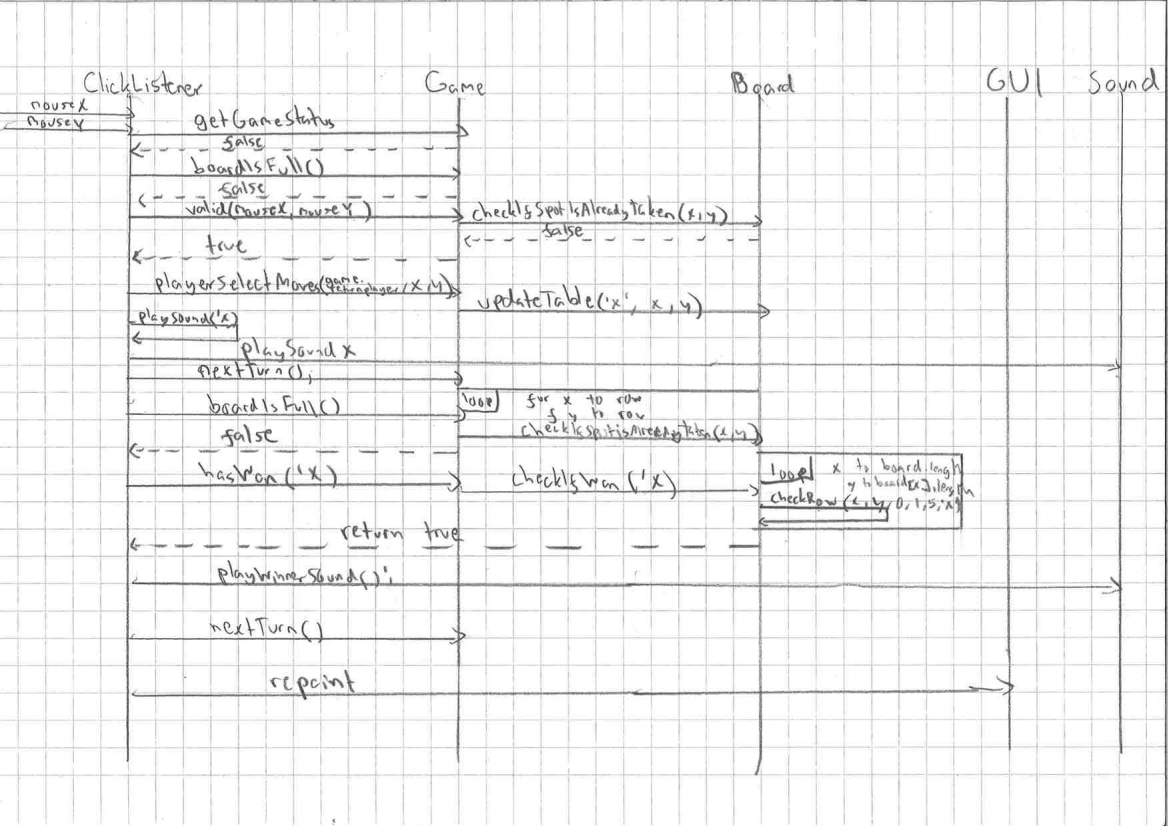 ClickListener Game Board GUI Sound
mouseX
mouseY
getGameStatus
false
boardIsFull()
false
valid(mouseX, mouseY)
checkIfSpotIsAlreadyTaken(x,y)
false
true
playerSelectMoves(game.
/x,y)
updateTable('x', x, y)
playSound('x)
playSound x
nextTurn();
boardIsFull()
loop for x to row
f y to row
checkIfSpotisAlreadyTaken(x,y)
false
hasWon('X)
checkIfWon('X)
loop x to board.lengh
y to board[x].length
checkRow(x, y, 0, 1, 5, 'x)
return true
playWinnerSound();
nextTurn()
repaint